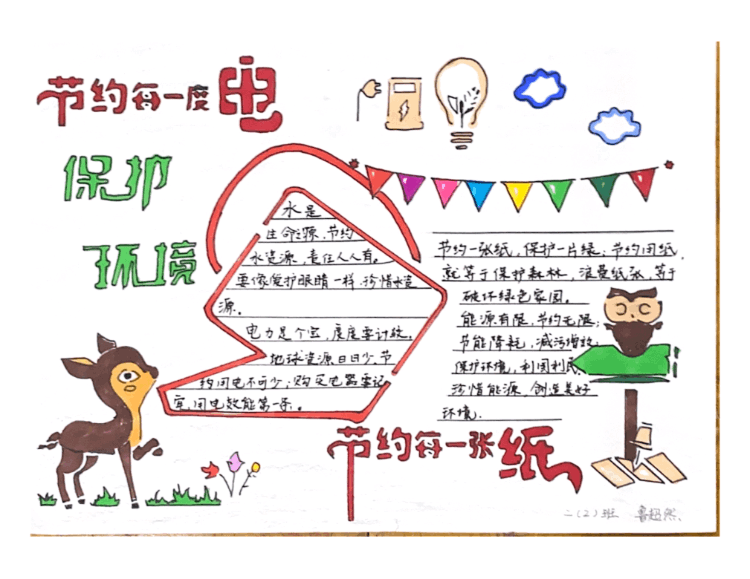 节约每一度电
保护
环境
水是
生命之源,节约
水资源,责任人人有。
要像爱护眼睛一样,珍惜水资
源。
电力是个宝,度度要计较。
地球资源日日少,节
约用电不可少;购买电器要记
牢,用电效能第一条。
节约一张纸,保护一片绿;节约用纸,
就等于保护森林,浪费纸张,等于
破坏绿色家园。
能源有限,节约无限;
节能降耗,减污增效,
保护环境,利国利民
珍惜能源,创造美好
环境.
节约每一张纸
二(2)班 鲁超然.